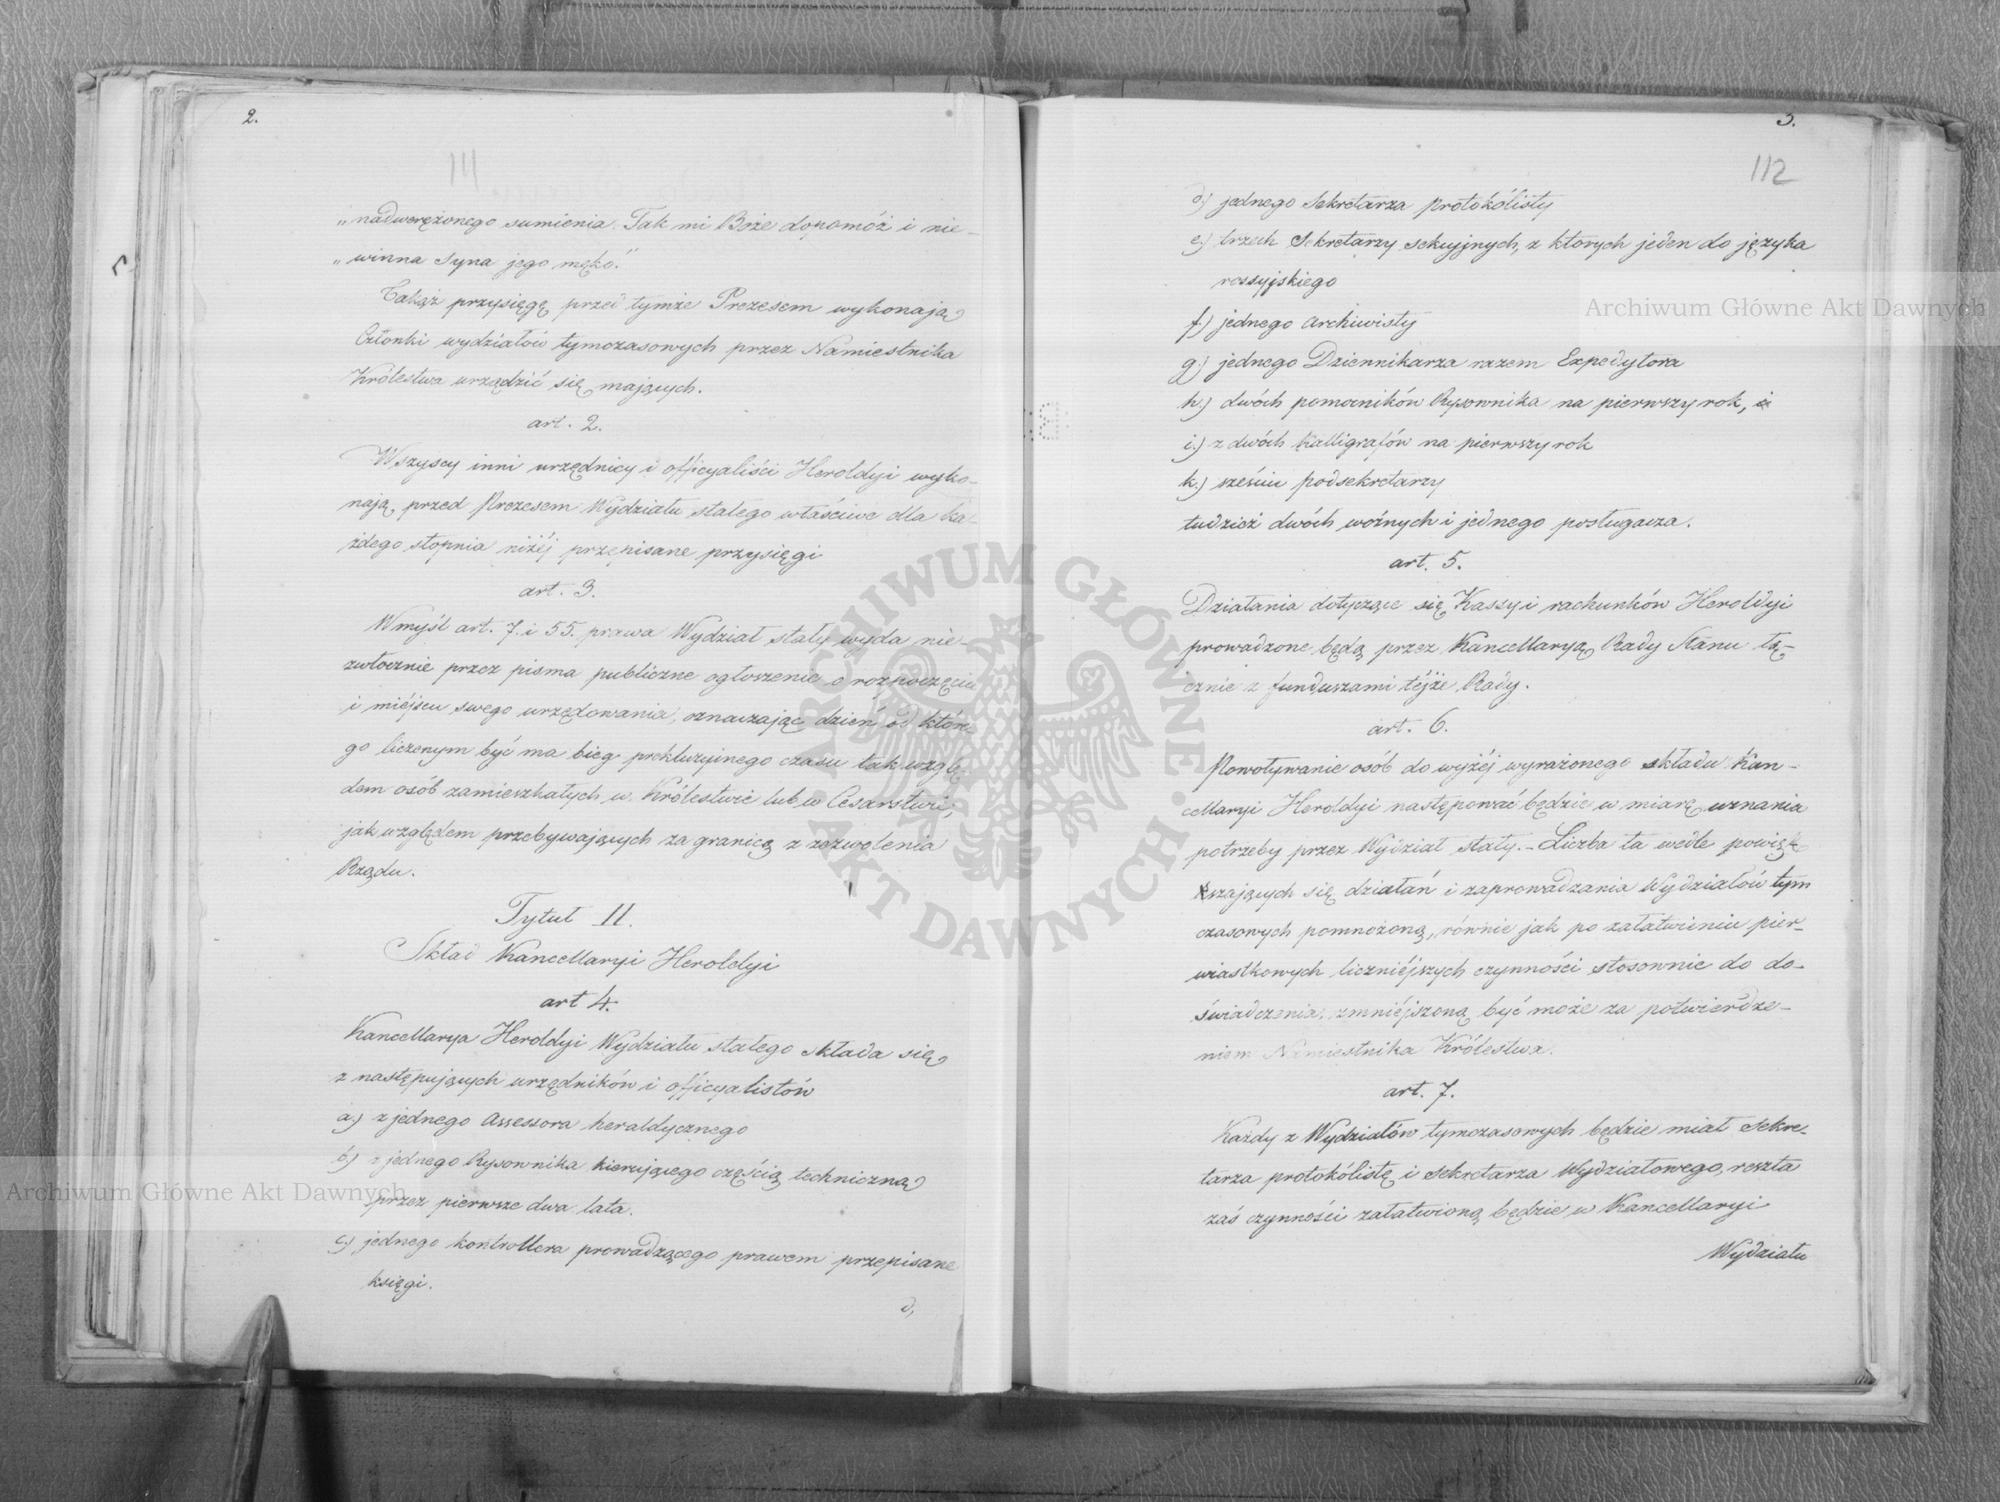 2.
111
„nadwerężonego sumienia. Tak mi Boże dopomóż i nie-
„winna Syna jego męko."
Takąż przysięgę przed tymże Prezesem wykonają
Członki wydziałów tymczasowych przez Namiestnika
Królestwa urządzić się mających.
art. 2.
Wszyscy inni urzędnicy i officyaliści Heroldyi wyko-
nają, przed Prezesem Wydziału stałego właściwe dla ka-
żdego stopnia niżéj przepisane przysięgi
art. 3.
W myśl art. 7. i 55. prawa Wydział stały wyda nie-
zwłocznie przez pisma publiczne ogłoszenie o rozpoczęciu
i miéjscu swego urzędowania, oznaczając dzień od które-
go liczonym być ma bieg prekluzyjnego czasu tak wzglę-
dem osób zamieszkałych w Królestwie lub w Cesarstwie,
jak względem przebywających za granicą z zezwolenia
Rządu.
Tytuł II.
Skład Kancellaryi Heroldyi
art 4.
Kancellarya Heroldyi Wydziału stałego składa się
z następujących urzędników i officyalistów
a.) z jednego Assessora heraldycznego
b.) z jednego Rysownika kierującego częścią techniczną
przez pierwsze dwa lata.
c.) jednego kontrollera prowadzącego prawem przepisane
księgi.
d,
3.
112
d.) jednego Sekretarza protokólisty
e.) trzech Sekretarzy sekcyjnych, z których jeden do języka
rossyjskiego
f.) jednego Archiwisty
g.) jednego Dziennikarza razem Expedytora
h.) dwóch pomocników Rysownika na pierwszy rok, i
i.) z dwóch kalligrafów na pierwszy rok
k.) sześciu podsekretarzy
tudzież dwóch woźnych i jednego posługacza.
art. 5.
Działania dotyczące się Kassy i rachunków Heroldyi
prowadzone będą przez Kancellaryą Rady Stanu łą-
cznie z funduszami téjże Rady.
art. 6.
Powoływanie osób do wyżéj wyrażonego składu Kan-
cellaryi Heroldyi następować będzie w miarę uznania
potrzeby przez Wydział stały. - Liczba ta wedle powięk-
szających się działań i zaprowadzania Wydziałów tym
czasowych pomnożoną, równie jak po załatwieniu pier-
wiastkowych liczniéjszych czynności stosownie do do-
świadczenia, zmniéjszoną być może za potwierdze-
niem Namiestnika Królestwa.
art. 7.
Każdy z Wydziałów tymczasowych będzie miał Sekre-
tarza protokólistę i Sekretarza Wydziałowego, reszta
zaś czynności załatwioną będzie w Kancellaryi
Wydziału
Archiwum Główne Akt Dawnych
Archiwum Główne Akt Dawnych
ARCHIWUM GŁÓWNE · AKT DAWNYCH ·